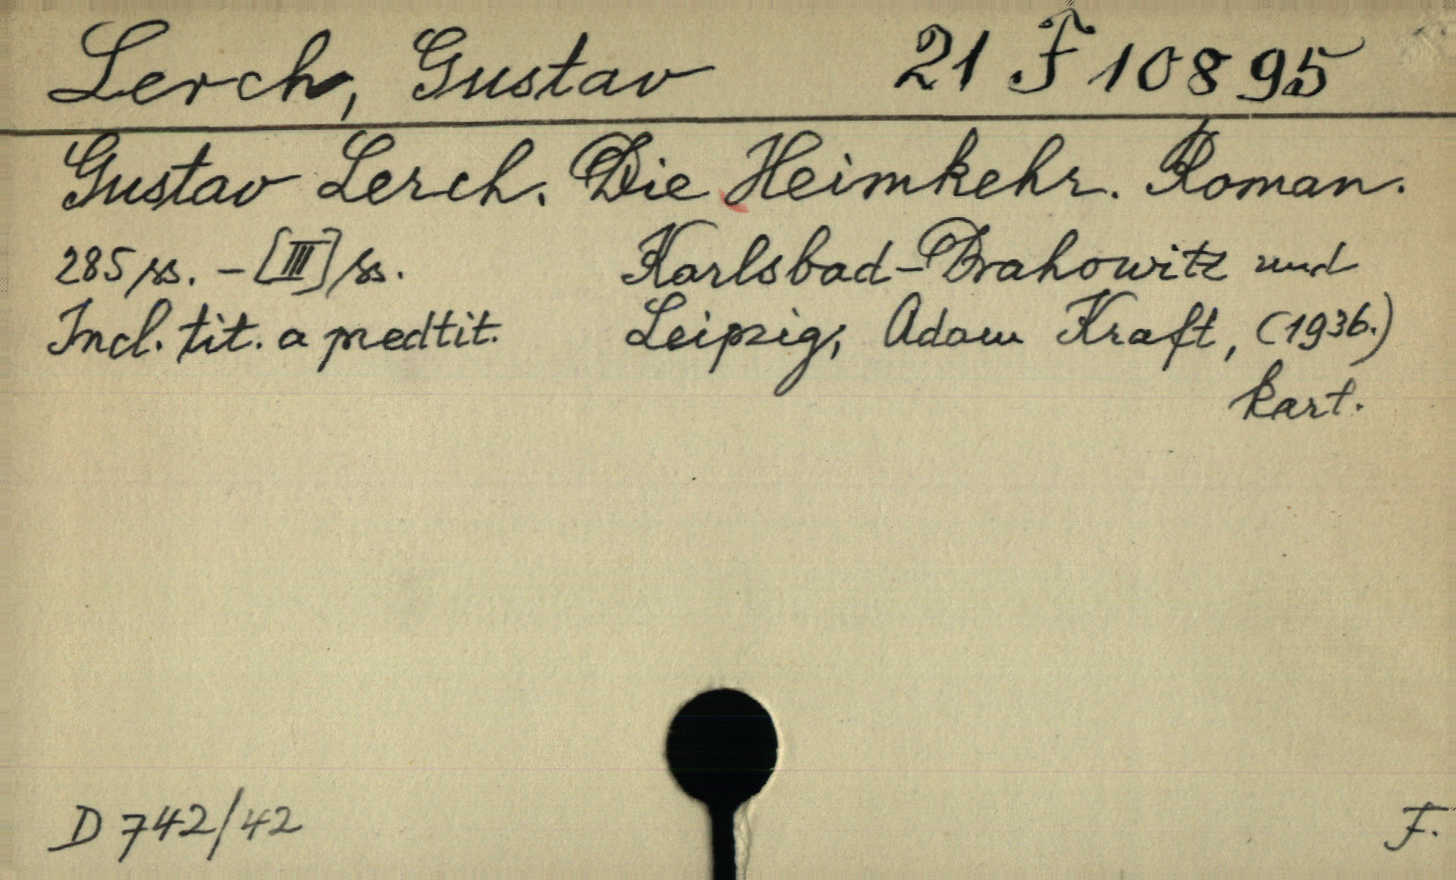 Lerch, Gustav 21 F 10895
Gustav Lerch. Die Heimkehr. Roman.
285 ss. - [III] ss. Karlsbad-Drahowitz und
Incl. tit. a predtit. Leipzig, Adam Kraft, (1936.)
kart.
D 742/42 F.